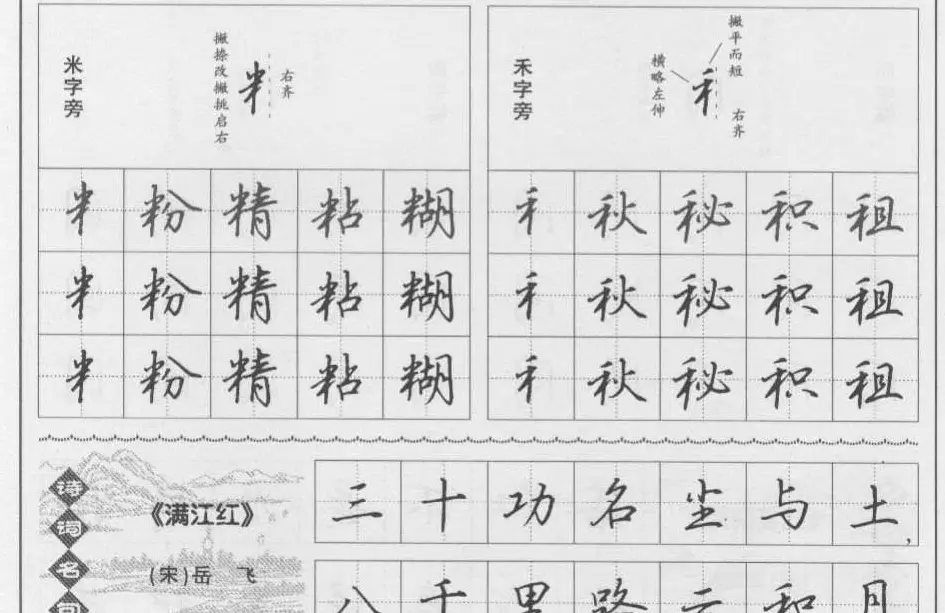 米字旁
撇捺改撇挑启右
右齐
米 粉 精 粘 糊
米 粉 精 粘 糊
米 粉 精 粘 糊
禾字旁
横略左伸
撇平而短
右齐
禾 秋 秘 积 租
禾 秋 秘 积 租
禾 秋 秘 积 租
诗词名句
《满江红》
(宋)岳 飞
三十功名尘与土,
八千里路云和月